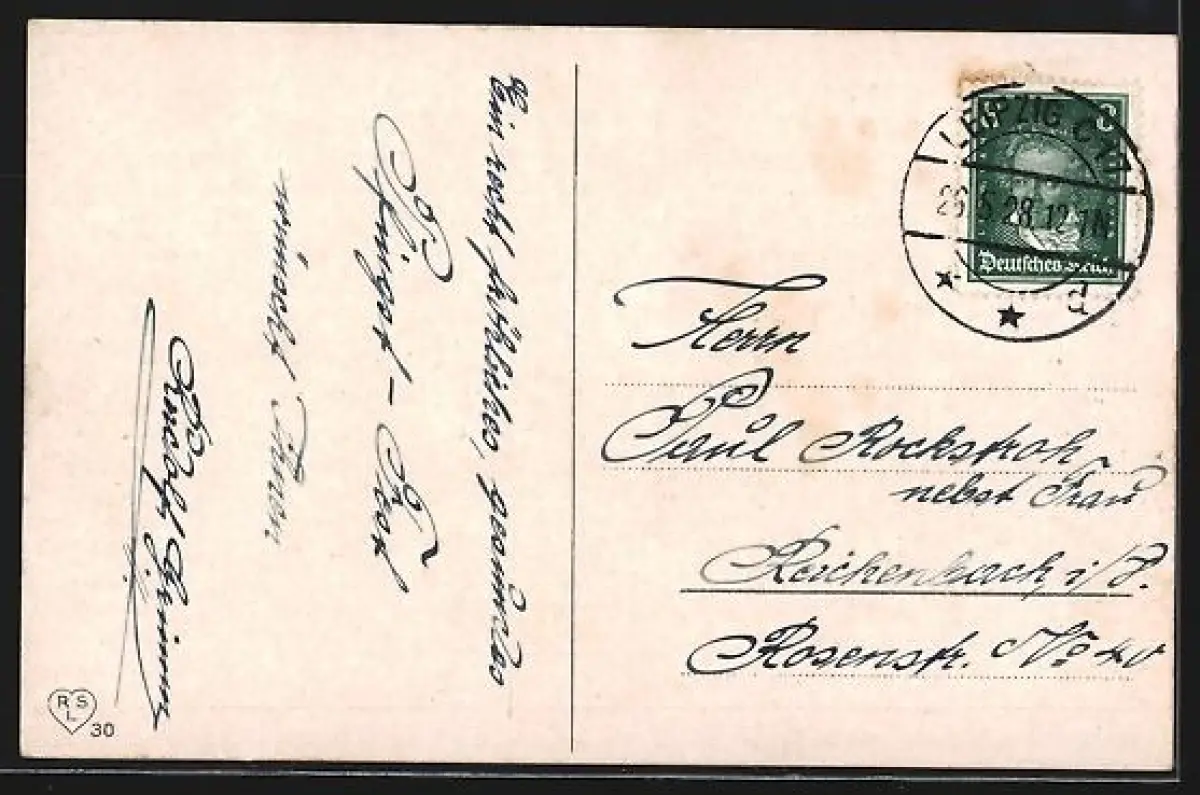 Ein recht fröhliches, gesundes
Pfingst-Fest
wünscht Ihnen
Rudolf
R S
L
30
8
LEIPZIG C
26.5.28.12-1N
d
Deutsches Reich
Herrn
Paul Rockstroh
nebst Frau
Reichenbach, i/V.
Rosenstr. No 40